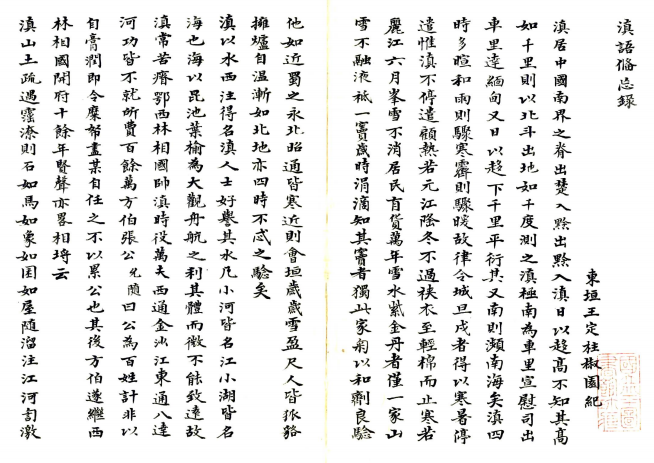 滇語偹忘錄
東垣王定柱椒園紀
滇居中國南界之脊出楚入黔出黔入滇日以趍髙不知其髙
如千里則以北斗出地如千度測之滇極南為車里宣慰司出
車里達緬甸又日以趍下千里平衍其又南則瀕南海矣滇四
時多暄和雨則驟寒霽則驟暖故律令城旦戍者得以寒暑停
遣惟滇不停遣顧熱若元江隆冬不過裌衣至輕棉而止寒若
麗江六月峯雪不消居民有貨萬年雪水紫金丹者僅一家山
雪不融液祗一竇歲時涓滴知其竇者獨此家匊以和劑良驗
他如近蜀之永北昭通皆寒近則會垣歲歲雪盈尺人皆狐貉
擁爐自温漸如北地亦四時不忒之驗矣
滇以水西注得名滇人士好譽其水凡小河皆名江小湖皆名
海也海以昆池葉榆為大觀舟航之利其體而微不能致逺故
滇常苦瘠鄂西林相國帥滇時役萬夫西通金沙江東通八達
河功皆不就所費百餘萬方伯張公允隨曰公為百姓計非以
自膏潤即令麋帑盡某自任之不以累公也其後方伯遂繼西
林相國開府十餘年賢聲亦畧相埒云
滇山土疏遇霪潦則石如馬如象如囷如屋随溜注江河訇激